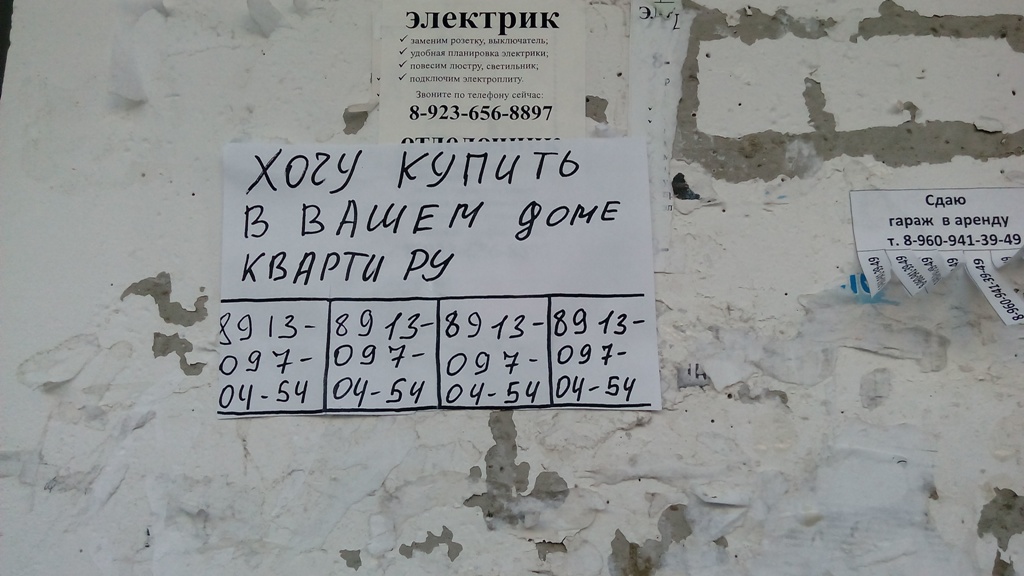 электрик
✓ заменим розетку, выключатель;
✓ удобная планировка электрики;
✓ повесим люстру, светильник;
✓ подключим электроплиту.
Звоните по телефону сейчас:
8-923-656-8897
ХОЧУ КУПИТЬ
В ВАШЕМ ДОМЕ
КВАРТИРУ
8913-
097-
04-54
8913-
097-
04-54
8913-
097-
04-54
8913-
097-
04-54
Сдаю
гараж в аренду
т. 8-960-941-39-49
8-960-941-39-49